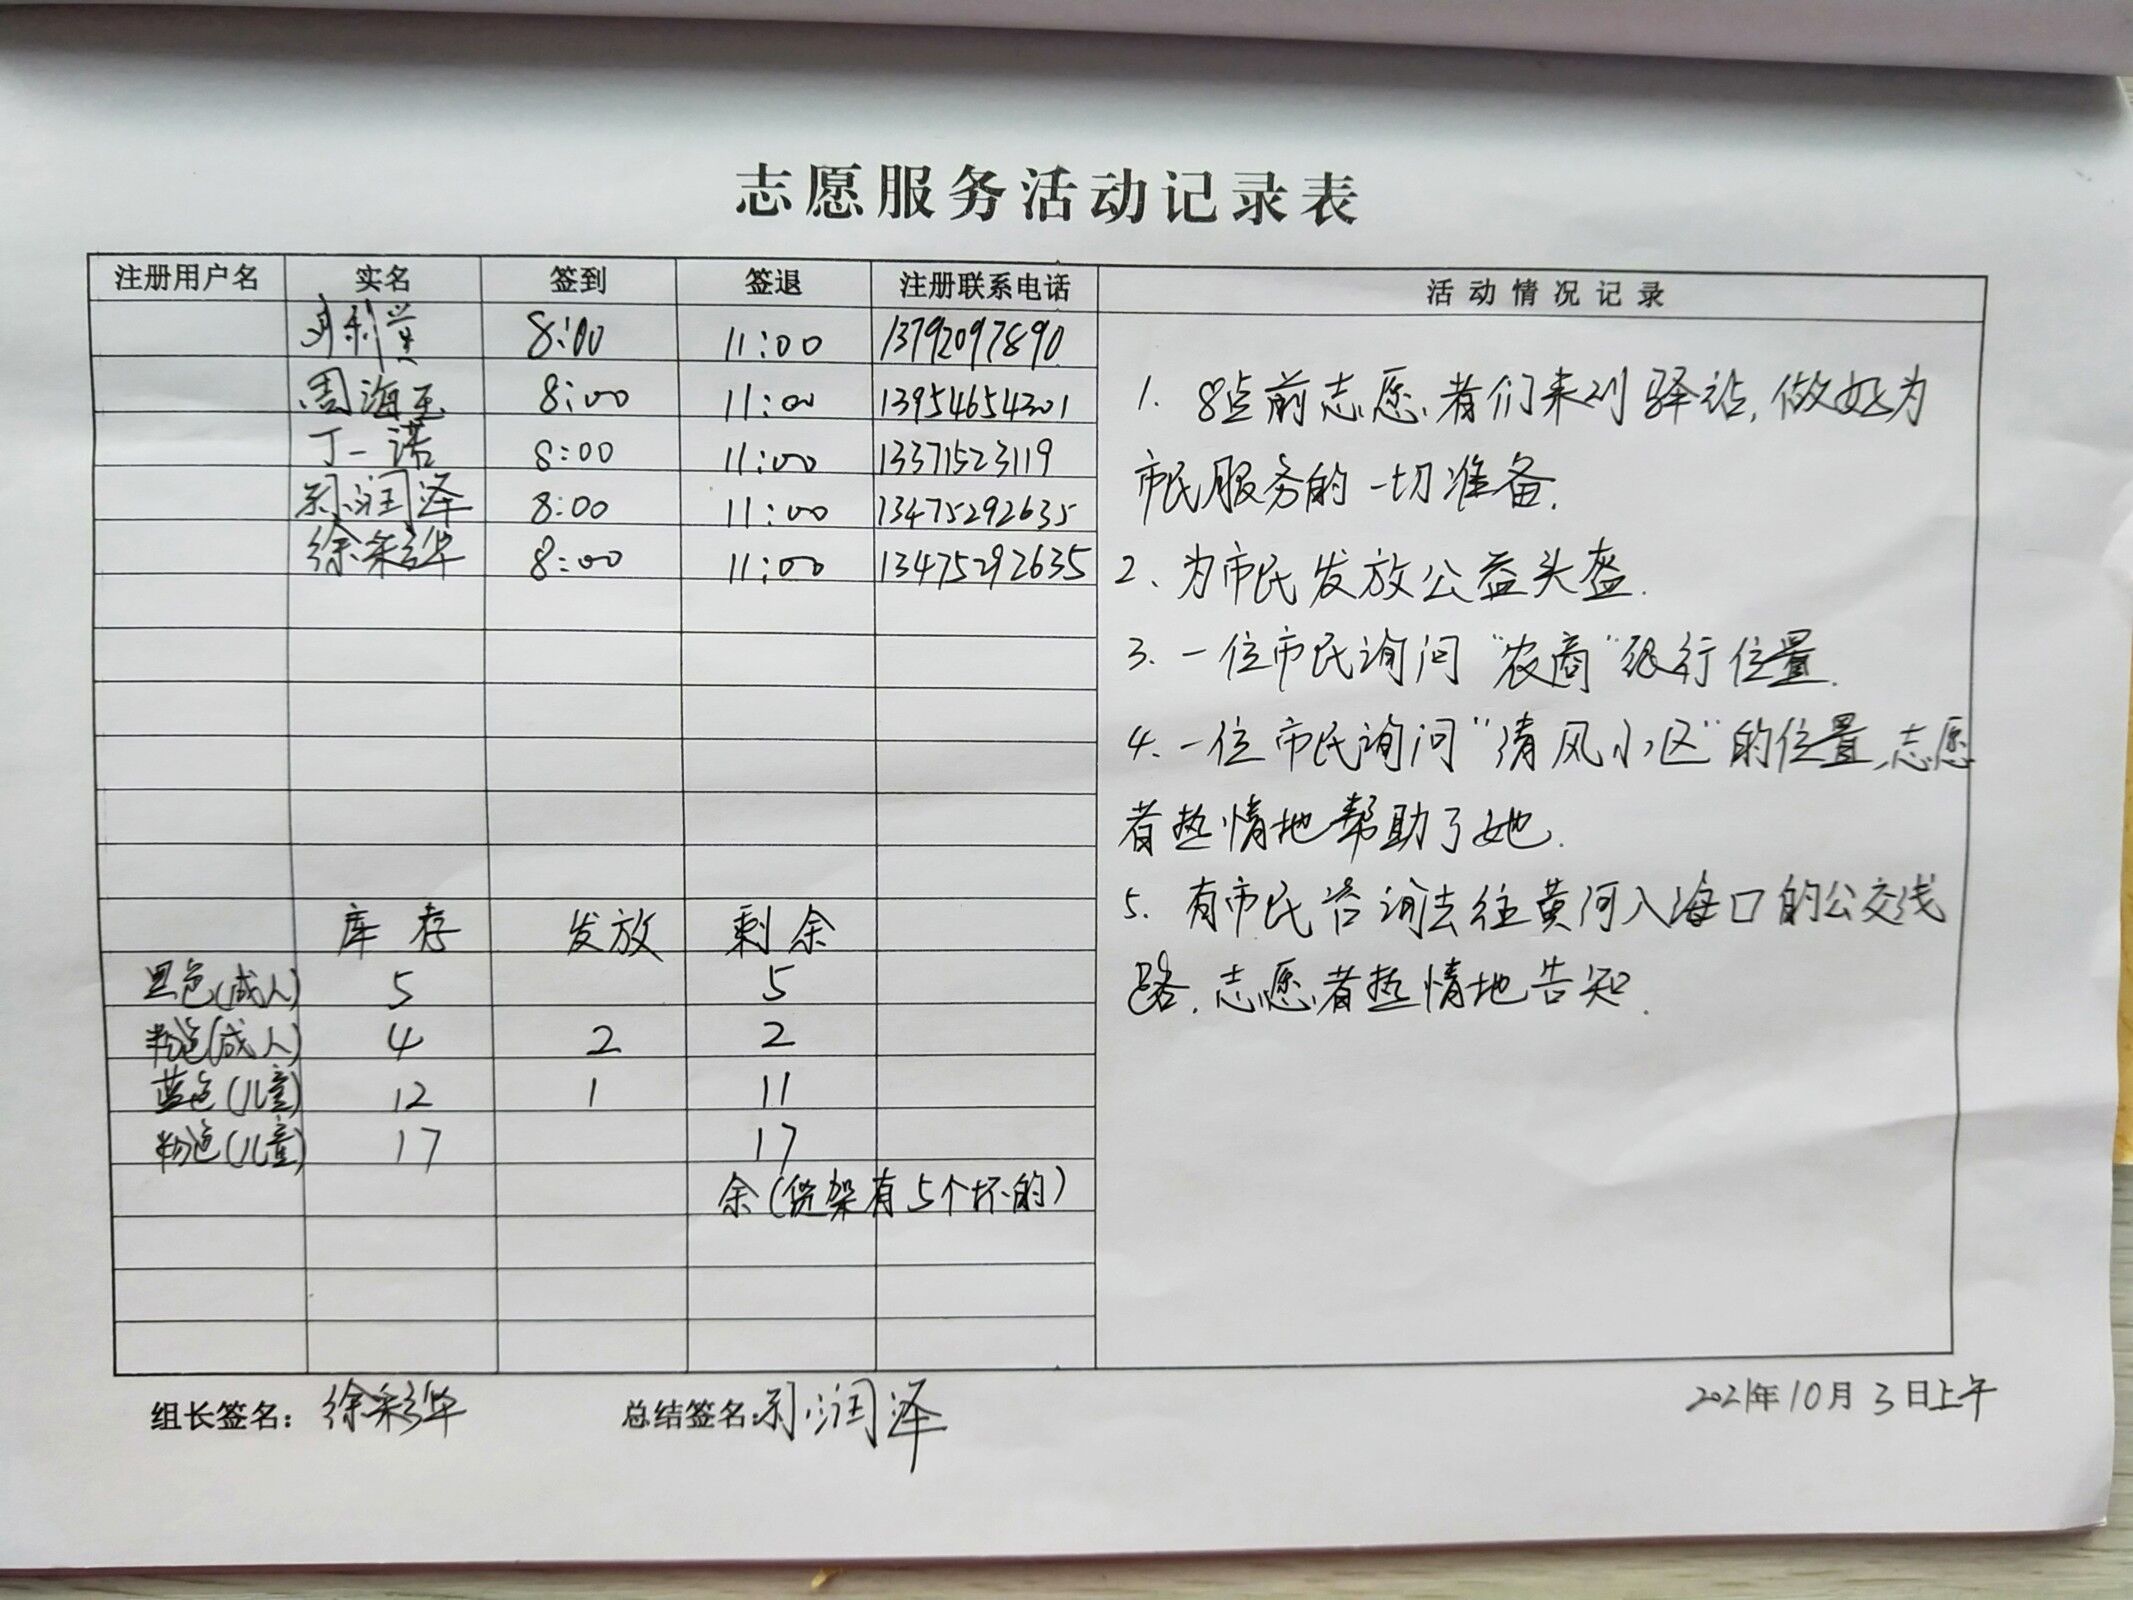 志愿服务活动记录表
注册用户名 实名 签到 签退 注册联系电话 活动情况记录
8:00 11:00 13792097890
周海玉 8:00 11:00 13954654301
丁一诺 8:00 11:00 13371523119
孙润泽 8:00 11:00 13475292635
徐彩华 8:00 11:00 13475292635
库存 发放 剩余
黑色(成人) 5 5
粉色(成人) 4 2 2
蓝色(儿童) 12 1 11
粉色(儿童) 17 17
余(货架有5个坏的)
1. 8点前志愿者们来到驿站,做好为
市民服务的一切准备.
2、为市民发放公益头盔.
3、一位市民询问"农商"银行位置.
4、一位市民询问"清风小区"的位置,志愿
者热情地帮助了她.
5、有市民咨询去往黄河入海口的公交线
路,志愿者热情地告知.
组长签名: 徐彩华 总结签名: 孙润泽 2021年10月3日上午